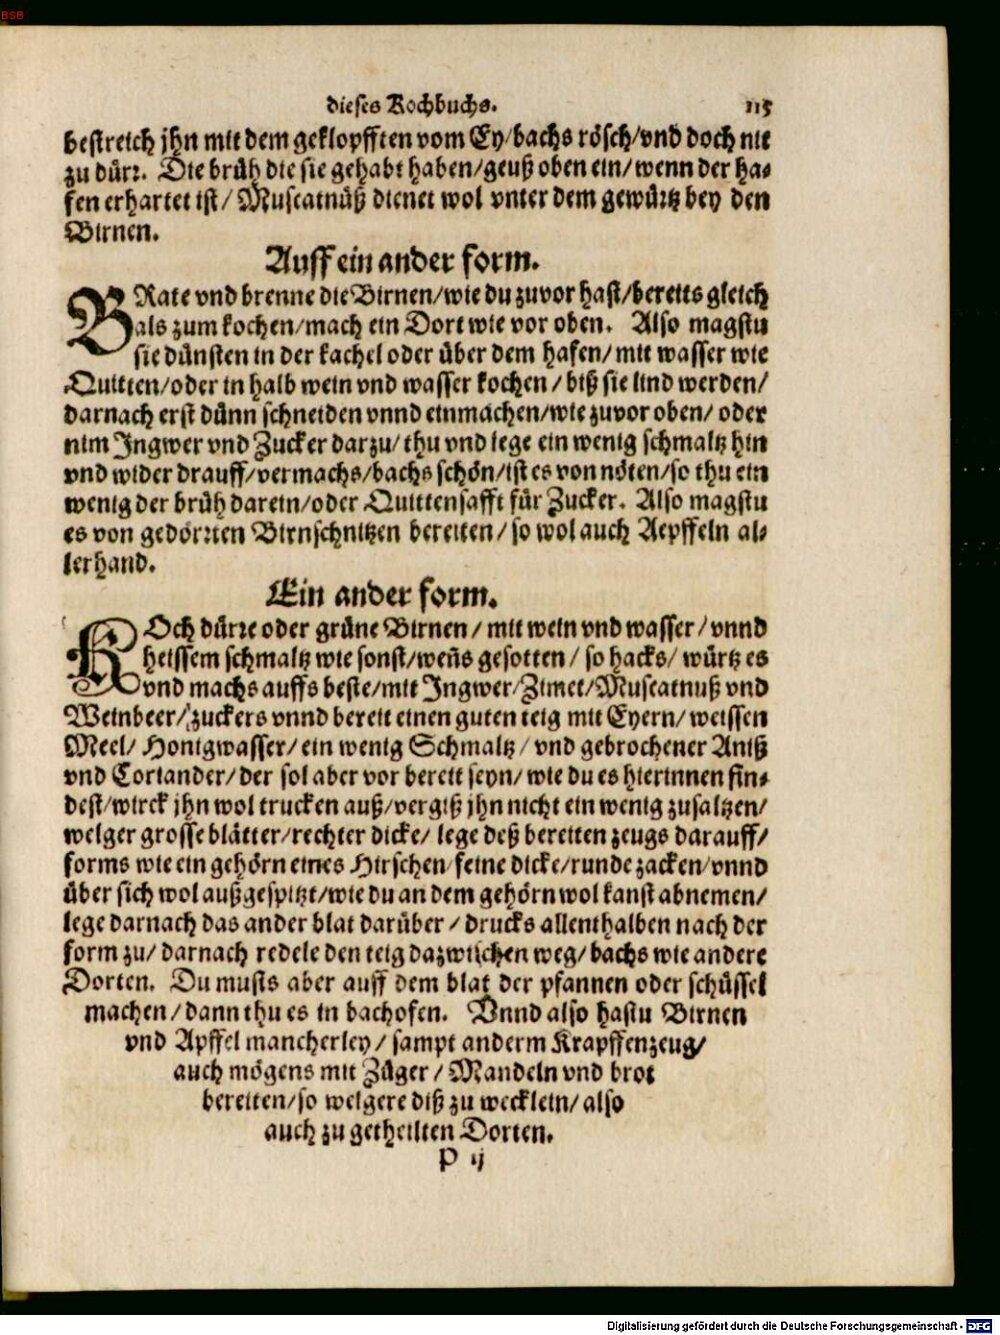 BSB
dieses Kochbuchs. 115
bestreich jhn mit dem geklopfften vom Ey/bachs rösch/vnd doch nit
zu dürr. Die brüh die sie gehabt haben/geuß oben ein/wenn der ha-
fen erhartet ist/ Muscatnüß dienet wol vnter dem gewürtz bey den
Birnen.
Auff ein ander form.
BRate vnd brenne die Birnen/wie du zuvor hast/bereits gleich
als zum kochen/mach ein Dort wie vor oben. Also magstu
sie dünsten in der kachel oder über dem hafen/mit wasser wie
Quitten/oder in halb wein vnd wasser kochen/biß sie lind werden/
darnach erst dünn schneiden vnnd einmachen/wie zuvor oben/ oder
nim Jngwer vnd Zucker darzu/thu vnd lege ein wenig schmaltz hin
vnd wider drauff/vermachs/bachs schön/ist es von nöten/so thu ein
wenig der brüh darein/oder Quittensafft für Zucker. Also magstu
es von gedörrten Birnschnitzen bereiten/so wol auch Aepffeln al-
lerhand.
Ein ander form.
KOch dürre oder grüne Birnen/ mit wein vnd wasser/vnnd
heissem schmaltz wie sonst/weñs gesotten/ so hacks/ würtz es
vnd machs auffs beste/mit Jngwer/Zimet/Muscatnuß vnd
Weinbeer/zuckers vnnd bereit einen guten teig mit Eyern/weissen
Meel/ Honigwasser/ein wenig Schmaltz/vnd gebrochener Aniß
vnd Coriander/der sol aber vor bereit seyn/wie du es hierinnen fin-
dest/wirck jhn wol trucken auß/vergiß jhn nicht ein wenig zusaltzen/
welger grosse blätter/rechter dicke/ lege deß bereiten zeugs darauff/
forms wie ein gehörn eines Hirschen/feine dicke/runde zacken/vnnd
über sich wol außgespitzt/wie du an dem gehörn wol kanst abnemen/
lege darnach das ander blat darüber/drucks allenthalben nach der
form zu/darnach redele den teig dazwischen weg/bachs wie andere
Dorten. Du musts aber auff dem blat der pfannen oder schüssel
machen/dann thu es in bachofen. Vnnd also hastu Birnen
vnd Apffel mancherley/ sampt anderm Krapffenzeug/
auch mögens mit Züger/Mandeln vnd brot
bereiten/so welgere diß zu wecklein/also
auch zu getheilten Dorten.
P ij
Digitalisierung gefördert durch die Deutsche Forschungsgemeinschaft - DFG